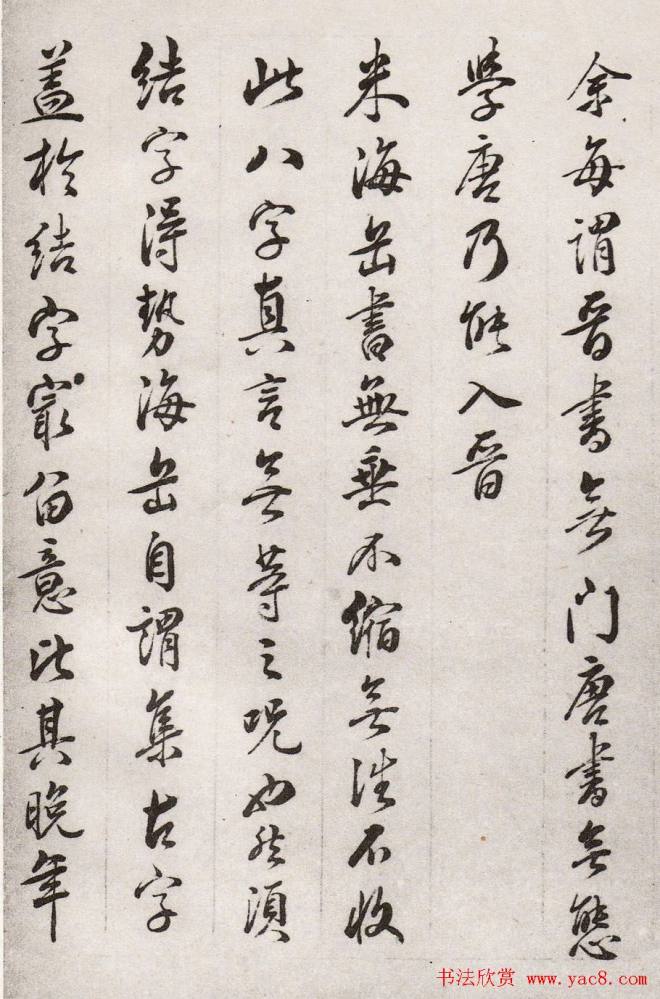 余每謂晉書無門唐書無態
學唐乃能入晉
米海岳書無垂不縮無往不收
此八字真言無等之呪也然須
結字得勢海岳自謂集古字
蓋於結字最留意比其晚年
书法欣赏 www.yac8.com